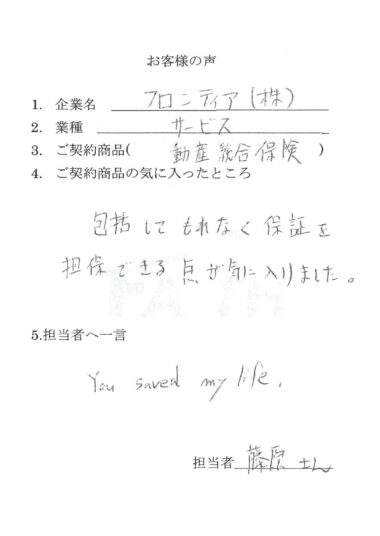 お客様の声
1. 企業名 フロンティア(株)
2. 業種 サービス
3. ご契約商品( 動産総合保険 )
4. ご契約商品の気に入ったところ
包括してもれなく保証を
担保できる点が気に入りました。
5.担当者へ一言
You saved my life.
担当者 藤原さん